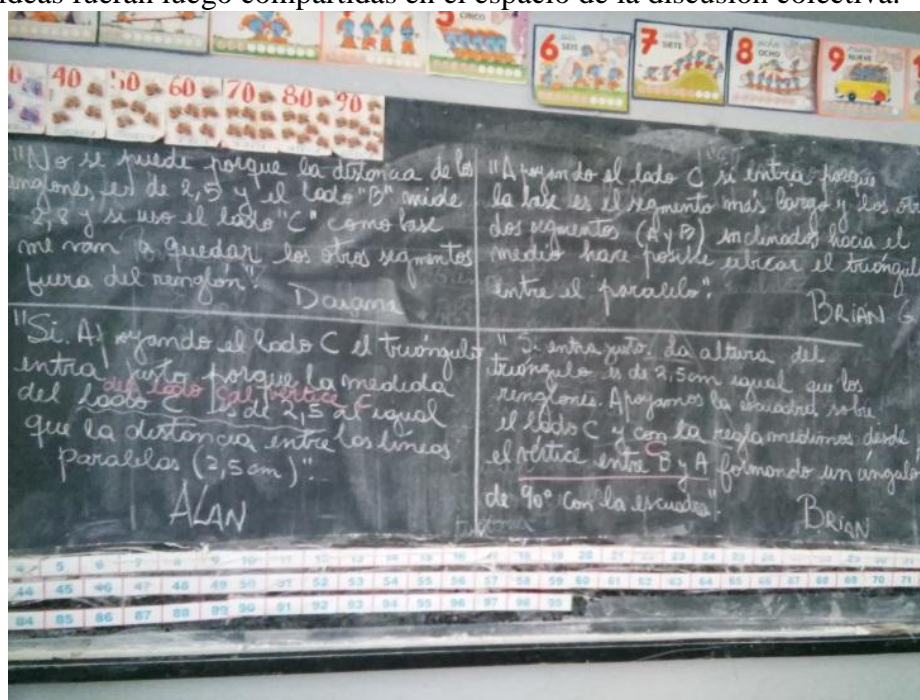 ideas fueran luego compartidas en el espacio de la discusión colectiva.
CINCO
6 SEIS
7 SIETE
8 OCHO
9 NUEVE
40 50 60 70 80 90
"No se puede porque la distancia de los
renglones, es de 2,5 y el lado "B" mide
2,8 y si uso el lado "C" como base
me van a quedar los otros segmentos
fuera del renglón".
Daiana
"Apoyando el lado C si entra porque
la base es el segmento más largo y los otros
dos segmentos (A y B) inclinados hacia el
medio hace posible ubicar el triángulo
entre el paralelo".
BRIAN G
"Si. Apoyando el lado C el triángulo
entra justo porque la medida
del lado C al vértice C
del lado C es de 2,5 al igual
que la distancia entre las líneas
paralelas (2,5 cm)".
ALAN
"Si entra justo. La altura del
triángulo es de 2,5cm igual que los
renglones. Apoyamos la escuadra sobre
el lado C y con la regla medimos desde
C
el vértice entre B y A formando un ángulo
de 90° con la escuadra".
BRIAN
5 6 7 8 9 10 11 12 13 14 15 16 17 18 19 20 21 22 23 24 25
44 45 46 47 48 49 50 51 52 53 54 55 56 57 58 59 60 61 62 63 64 65 66 67 68 69 70 71
84 85 86 87 88 89 90 91 92 93 94 95 96 97 98 99